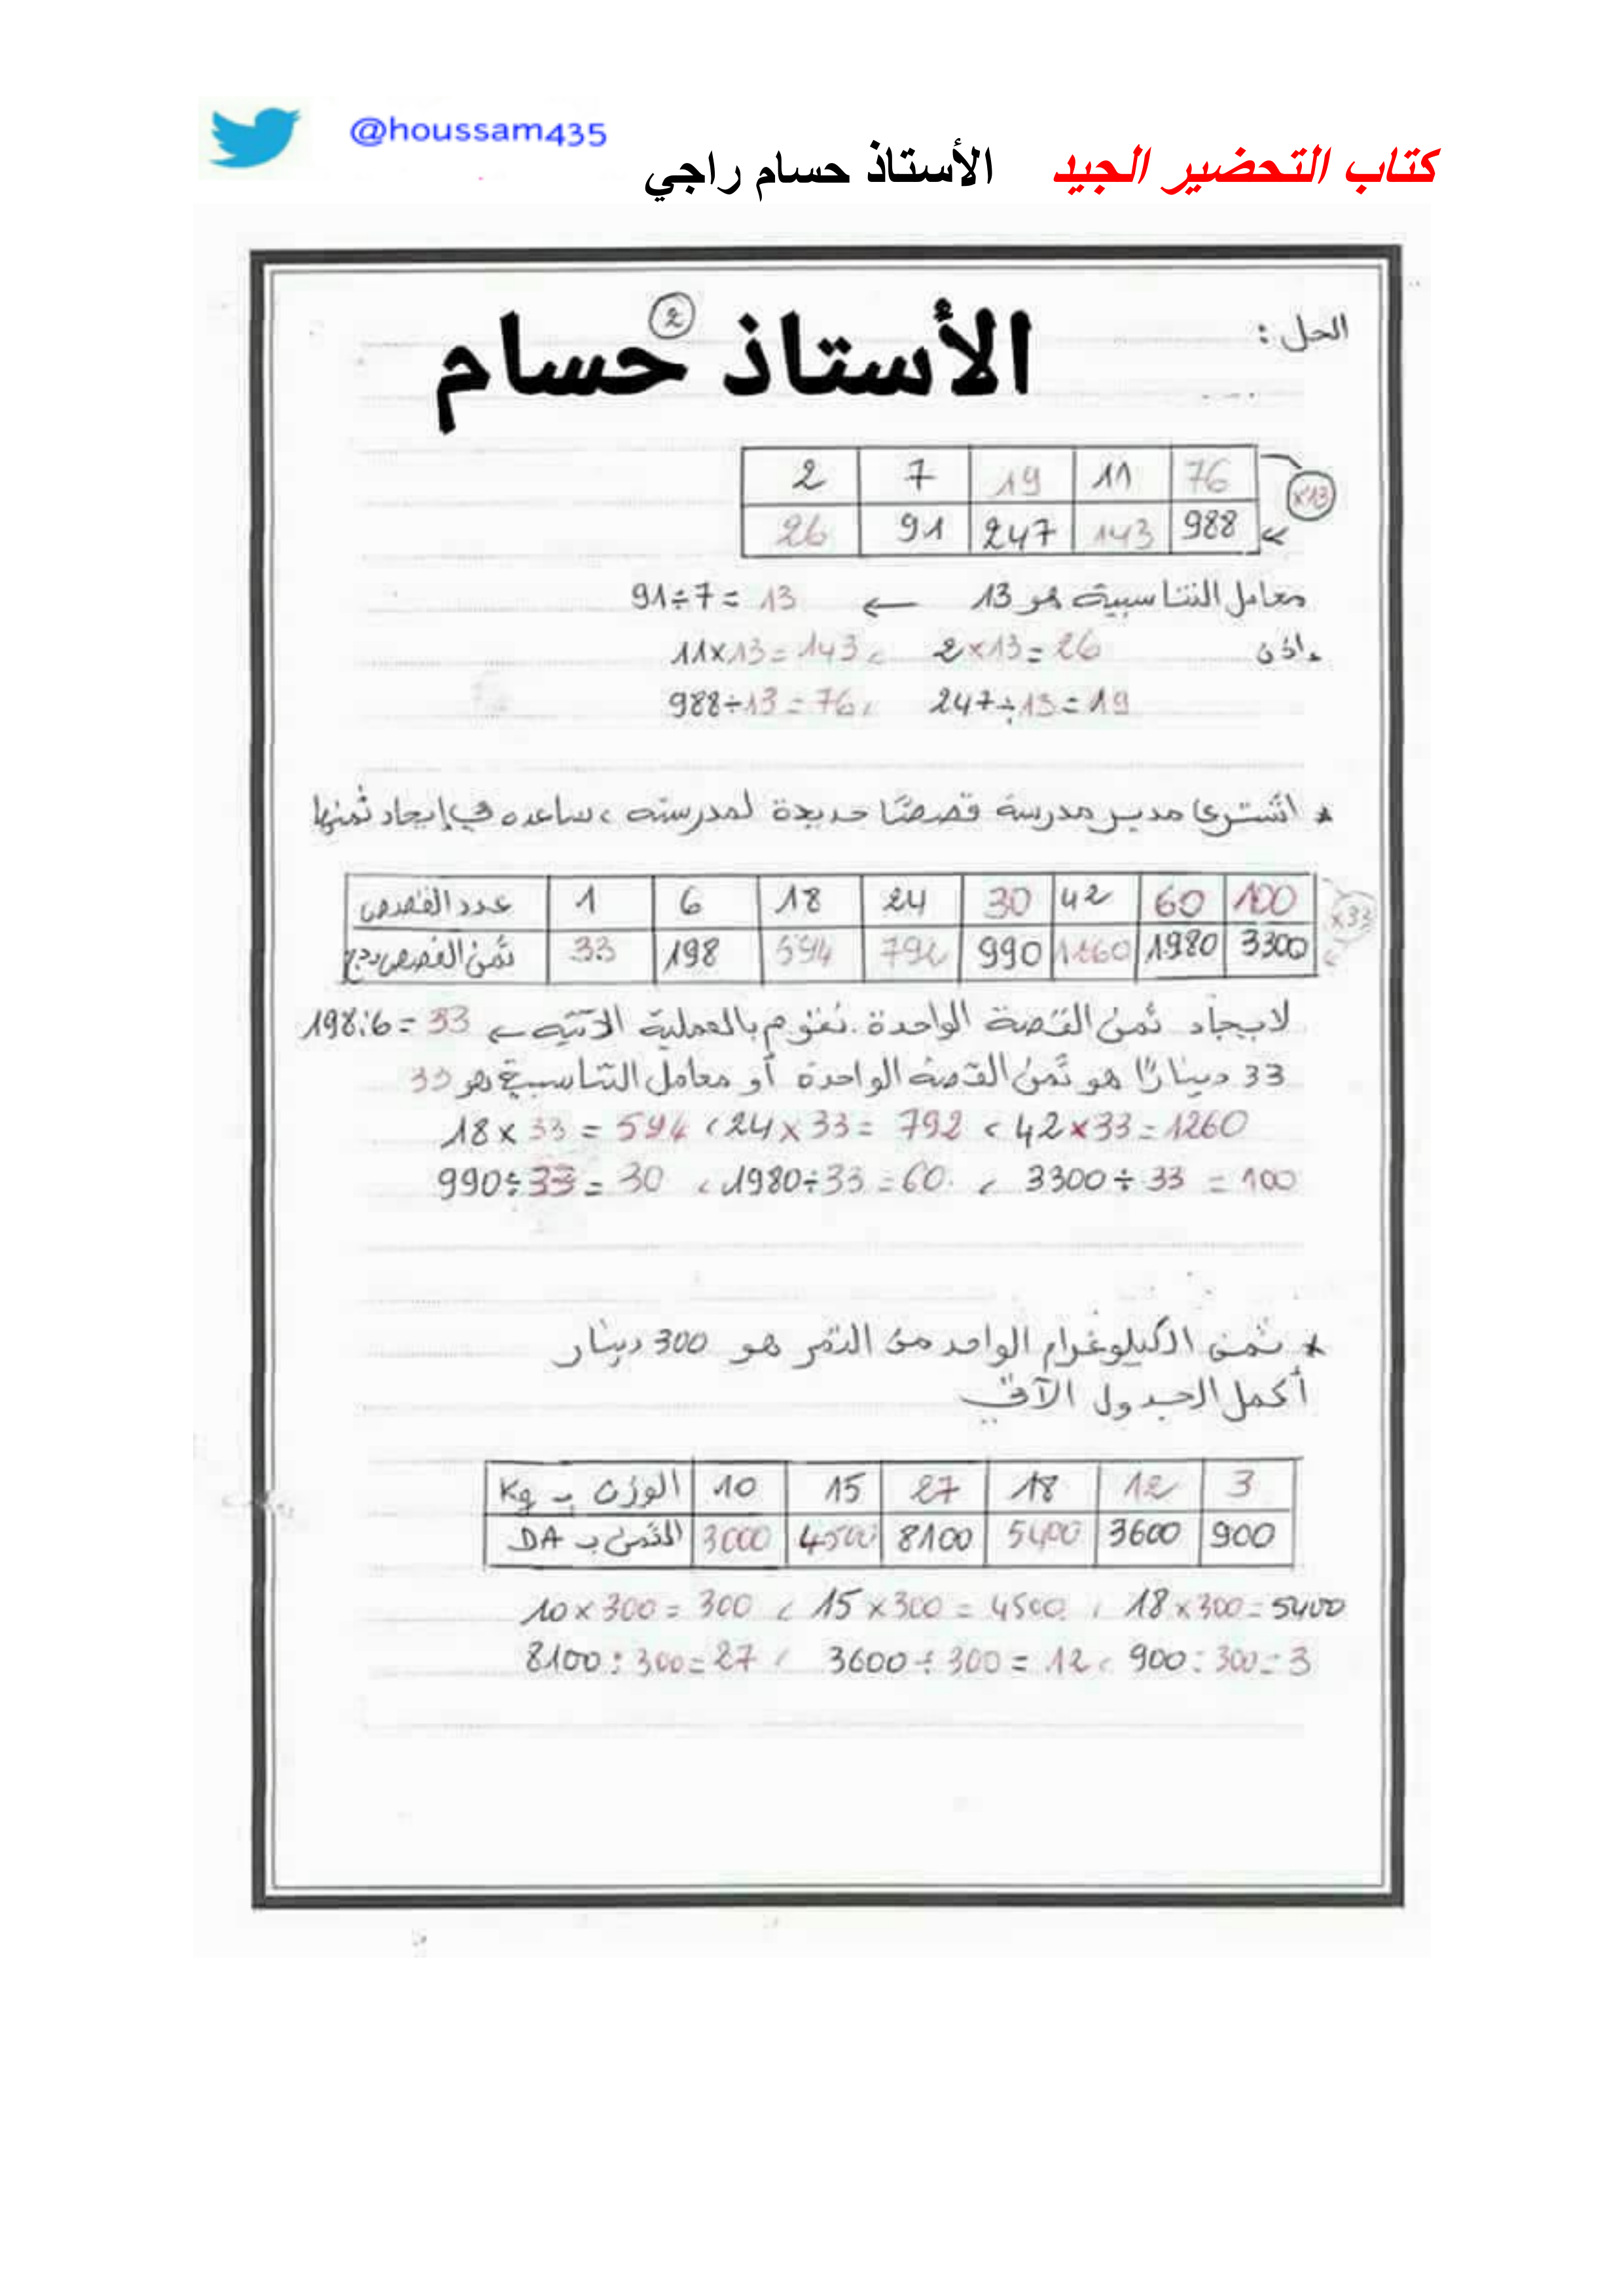 @houssam435
كتاب التحضير الجيد الأستاذ حسام راجي
2
الحل :
الأستاذ حسام
2 7 19 11 76
×13
26 91 247 143 988
معامل التناسبية هو 13 ← 91÷7= 13
إذن 2×13=26 ، 11×13=143
247÷13=19 ، 988÷13=76
* اشترى مدير مدرسة قصصًا جديدة لمدرسته ، ساعده في إيجاد ثمنها
عدد القصص 1 6 18 24 30 42 60 100
×33
ثمن القصص دج 33 198 594 792 990 1260 1980 3300
لايجاد ثمن القصة الواحدة . نقوم بالعملية الآتية ← 198:6=33
33 دينارًا هو ثمن القصة الواحدة أو معامل التناسبية هو 33
18×33=594 ، 24×33=792 ، 42×33=1260
990÷33=30 ، 1980÷33=60 ، 3300÷33=100
* ثمن الكيلوغرام الواحد من التمر هو 300 دينار
أكمل الجدول الآتي
الوزن بـ Kg 10 15 27 18 12 3
الثمن بـ DA 3000 4500 8100 5400 3600 900
10×300=300 ، 15×300=4500 ، 18×300=5400
8100:300=27 ، 3600÷300=12 ، 900:300=3